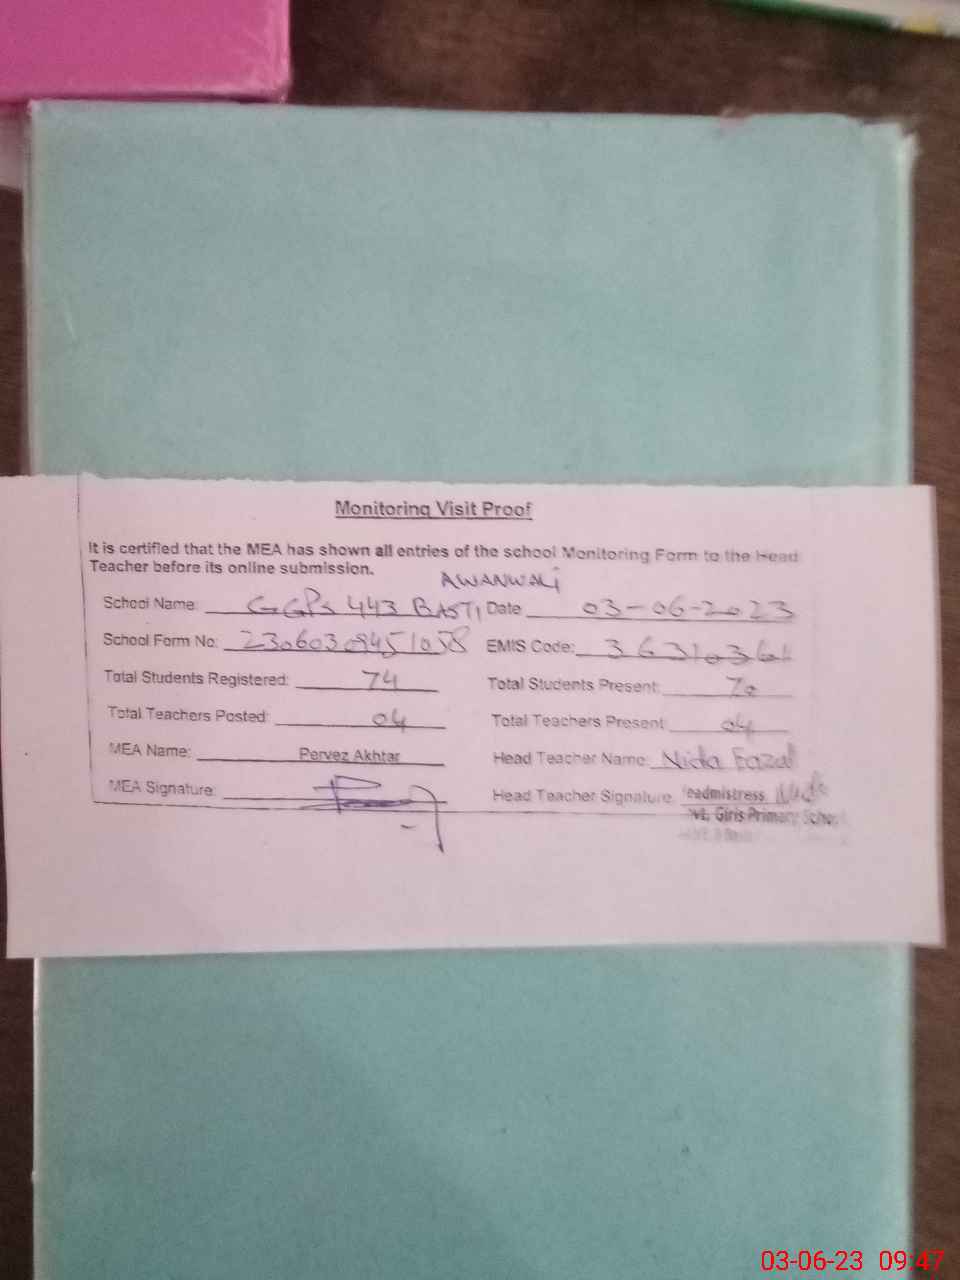 Monitoring Visit Proof
It is certified that the MEA has shown all entries of the school Monitoring Form to the Head
Teacher before its online submission.
AWANWALI
School Name: GGPS 443 BASTI Date 03-06-2023
School Form No: 23060309451058 EMIS Code: 36310361
Total Students Registered: 74 Total Students Present: 70
Total Teachers Posted: 04 Total Teachers Present 04
MEA Name: Pervez Akhtar Head Teacher Name: Nida Fazal
MEA Signature: Head Teacher Signature: eadmistress Nida
vt. Girls Primary School
03-06-23 09:47